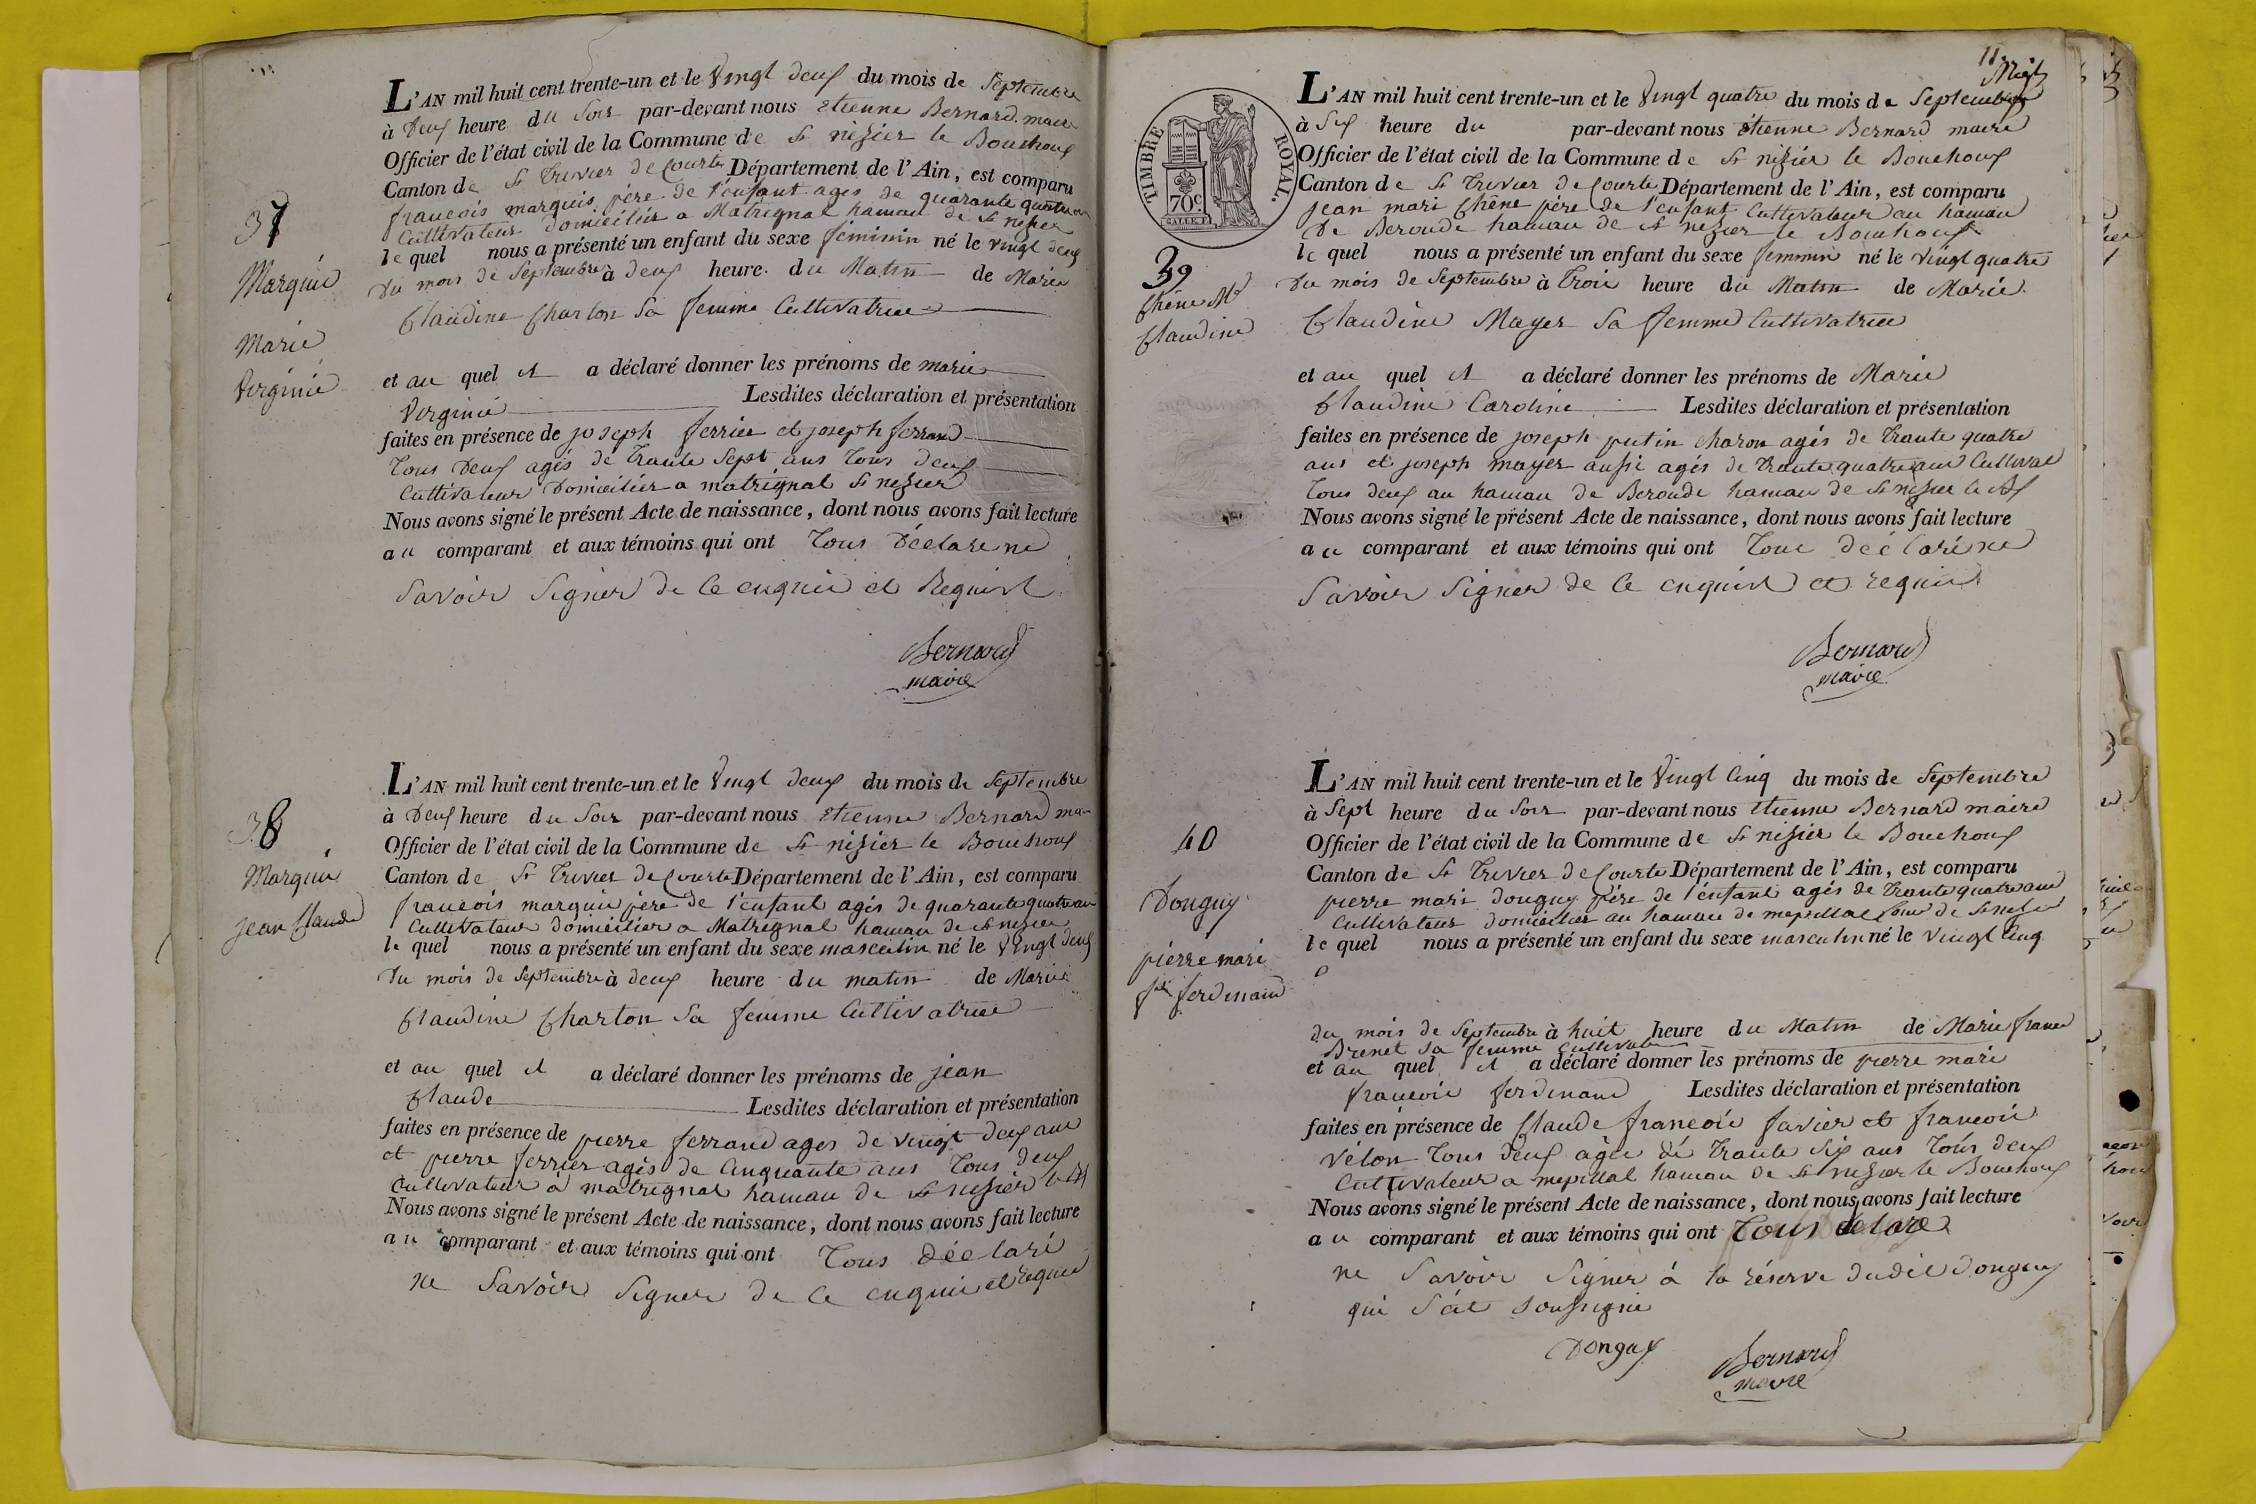 37
Marquis
Marie
Virginie
L'AN mil huit cent trente-un et le vingt deux du mois de Septembre
à Deux heure du Soir par-devant nous etienne Bernard maire
Officier de l'état civil de la Commune de St nizier le Bouchoux
Canton de St Trivier de Courte Département de l'Ain, est comparu
francois marquis père de l'enfant agés de quarante quatre ans
Cultivateur domicilier a Matrignat hamau de St nizier
le quel nous a présenté un enfant du sexe feminin né le vingt deux
du mois de Septembre à deux heure du Matin de Marie
Claudine Charton sa femme Cultivatrice
et au quel il a déclaré donner les prénoms de marie
Virginie Lesdites déclaration et présentation
faites en présence de joseph ferrier et joseph ferrand
Tous Deux agés de Trante Sept ans Tous deux
Cultivateur Domicilier a matrignat St nizier
Nous avons signé le présent Acte de naissance, dont nous avons fait lecture
au comparant et aux témoins qui ont Tous Déclare ne
Savoir Signer de Ce enquis et Requist
Bernard
maire
38
Marquis
jean Claude
L'AN mil huit cent trente-un et le Vingt deux du mois de Septembre
à Deux heure du Soir par-devant nous etienne Bernard ma
Officier de l'état civil de la Commune de St nizier le Bouchoux
Canton de St Trivier de Courte Département de l'Ain, est comparu
francois marquis père de l'enfant agés de quarante quatre an
Cultivateur domicilier a Matrignat hamau de St nizier
le quel nous a présenté un enfant du sexe masculin né le Vingt deux
du mois de Septembre à deux heure du matin de Marie
Claudine Charton sa femme Cultivatrice
et au quel il a déclaré donner les prénoms de jean
Claude Lesdites déclaration et présentation
faites en présence de pierre ferrand agés de vingt deux ans
et pierre ferrier agés de Cinquante ans Tous deux
Cultivateur a matrignat hamau de St nizier
Nous avons signé le présent Acte de naissance, dont nous avons fait lecture
au comparant et aux témoins qui ont Tous Déclaré
ne Savoir Signer de Ce enquis et requis
11
TIMBRE ROYAL.
70c
39
Chêne Me
Claudine
L'AN mil huit cent trente-un et le Vingt quatre du mois de Septembre
à Six heure du par-devant nous étienne Bernard maire
Officier de l'état civil de la Commune de St nizier le Bouchoux
Canton de St Trivier de Courte Département de l'Ain, est comparu
jean mari Chêne père de l'enfant Cultivateur au hamau
de Beroude hamau de St nizier le Bouchoux
le quel nous a présenté un enfant du sexe feminin né le vingt quatre
du mois de Septembre à Trois heure du Matin de Marie
Claudine Mayer sa femme Cultivatrice
et au quel il a déclaré donner les prénoms de Marie
Claudine Caroline Lesdites déclaration et présentation
faites en présence de joseph putin charon agés de Trante quatre
ans et joseph mayer aussi agés de trante quatre ans Cultivat
Tous deux au hamau de Beroude hamau de St nizier le Bx
Nous avons signé le présent Acte de naissance, dont nous avons fait lecture
au comparant et aux témoins qui ont Tous déclaré ne
Savoir Signer de Ce enquist et requis
Bernard
maire
40
Donguy
pierre mari
fr ferdinand
L'AN mil huit cent trente-un et le Vingt Cinq du mois de Septembre
à Sept heure du Soir par-devant nous etienne Bernard maire
Officier de l'état civil de la Commune de St nizier le Bouchoux
Canton de St Trivier de Courte Département de l'Ain, est comparu
pierre mari donguy père de l'enfant agés de trante quatre ans
Cultivateur domicilier au hamau de mepillat de St nizier
le quel nous a présenté un enfant du sexe masculin né le Vingt Cinq
du mois de Septembre à huit heure du Matin de Marie france
Brenet sa femme Cultivat
et au quel il a déclaré donner les prénoms de pierre mari
francois ferdinand Lesdites déclaration et présentation
faites en présence de Claude francois favier et francois
vélon Tous deux agés de Trante Six ans Tous deux
Cultivateur a mepillat hamau de St nizier le Bouchoux
Nous avons signé le présent Acte de naissance, dont nous avons fait lecture
au comparant et aux témoins qui ont Tous délare
ne Savoir Signer à la réserve dudit donguy
qui S'est Soussignie
Donguy
Bernard
maire